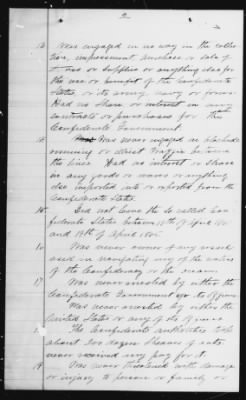 2
13 Was engaged in no way in the collec-
tion, impressment, purchase or sale of
or supplies or anything else for
the use or benefit of the Confederate
States, or its army, navy or forces.
Had no share or interest in any
contracts or purchases for the
Confederate Government.
14 Was never engaged in blockade
running or illicit traffic between
the lines. Had no interest or share
in any goods or wares or anything
else imported into or exported from the
Confederate States.
15 Did not leave the so called Con-
federate States between 19th of April 1861
and 19th of April 1865.
16 Was never owner of any vessel
used in navigating any of the waters
of the Confederacy or the ocean.
17 Was never arrested by either the
Confederate Government
Was never arrested by either the
United States or any of its
18 The Confederate authorities took
about two dozen sheaves of oats
never received any pay for it.
19 Was never threatened with damage
or injury to person or family or